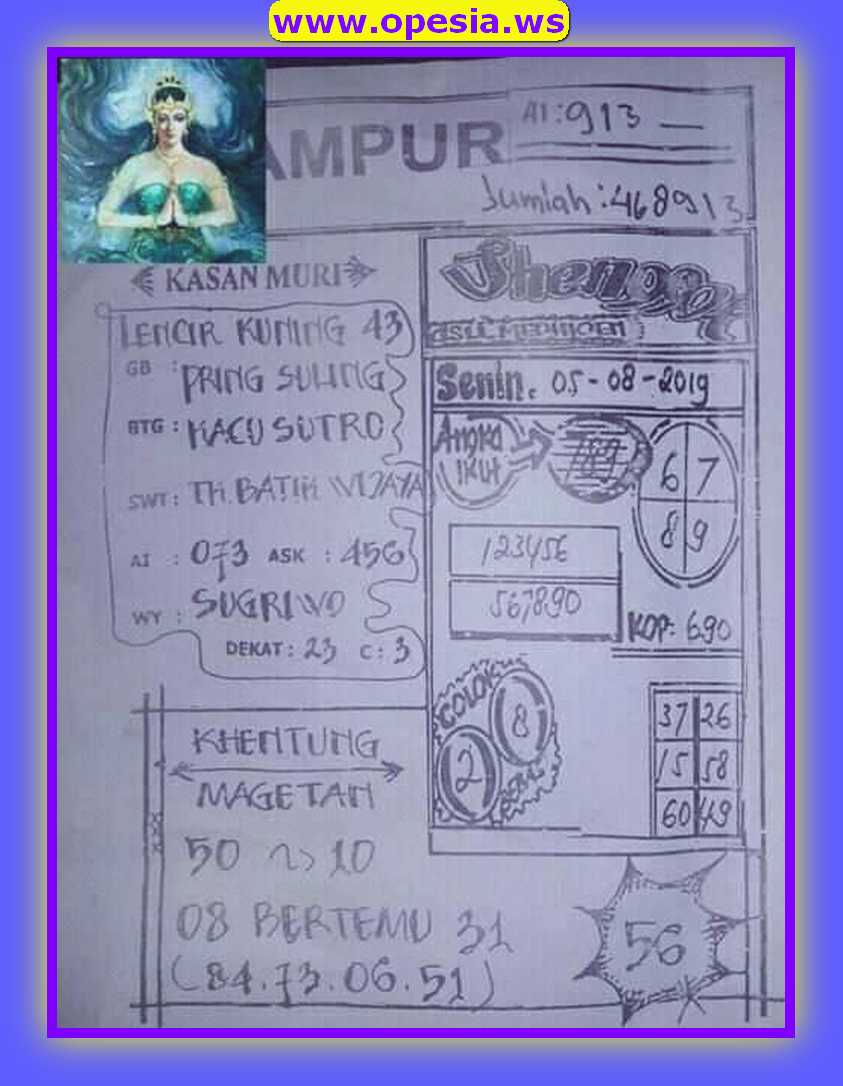 www.opesia.ws
AMPUR
AI:913
Jumlah:468913
KASAN MURI
LENCIR KUNING 43
GB : PRING SULING
BTG : KACU SUTRO
SWT : TH. BATIK WIJAYA
AI : 073 ASK : 456
WY : SUGRIWO
DEKAT : 23 C : 3
KHENTUNG
MAGETAN
50 10
08 BERTEMU 31
(84.73.06.51)
Senin. 05-08-2019
Angka
IKUT
789
6 7
8 9
123456
567890
KOP: 690
COLOK
2 8
BEBAS
37 26
15 58
60 49
56